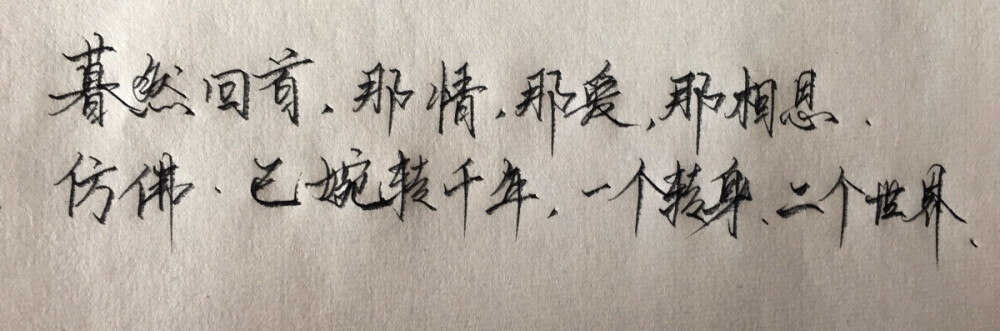 暮然回首,那情,那爱,那相思.
仿佛.已婉转千年,一个转身、二个世界、